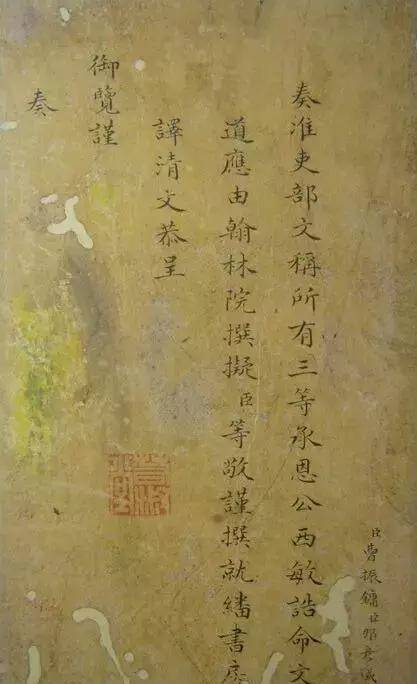 奏淮吏部文稱所有三等承恩公西敏誥命文
道應由翰林院撰擬臣等敬謹撰就繙書房
譯清文恭呈
御覽謹
奏
臣曹振鏞臣